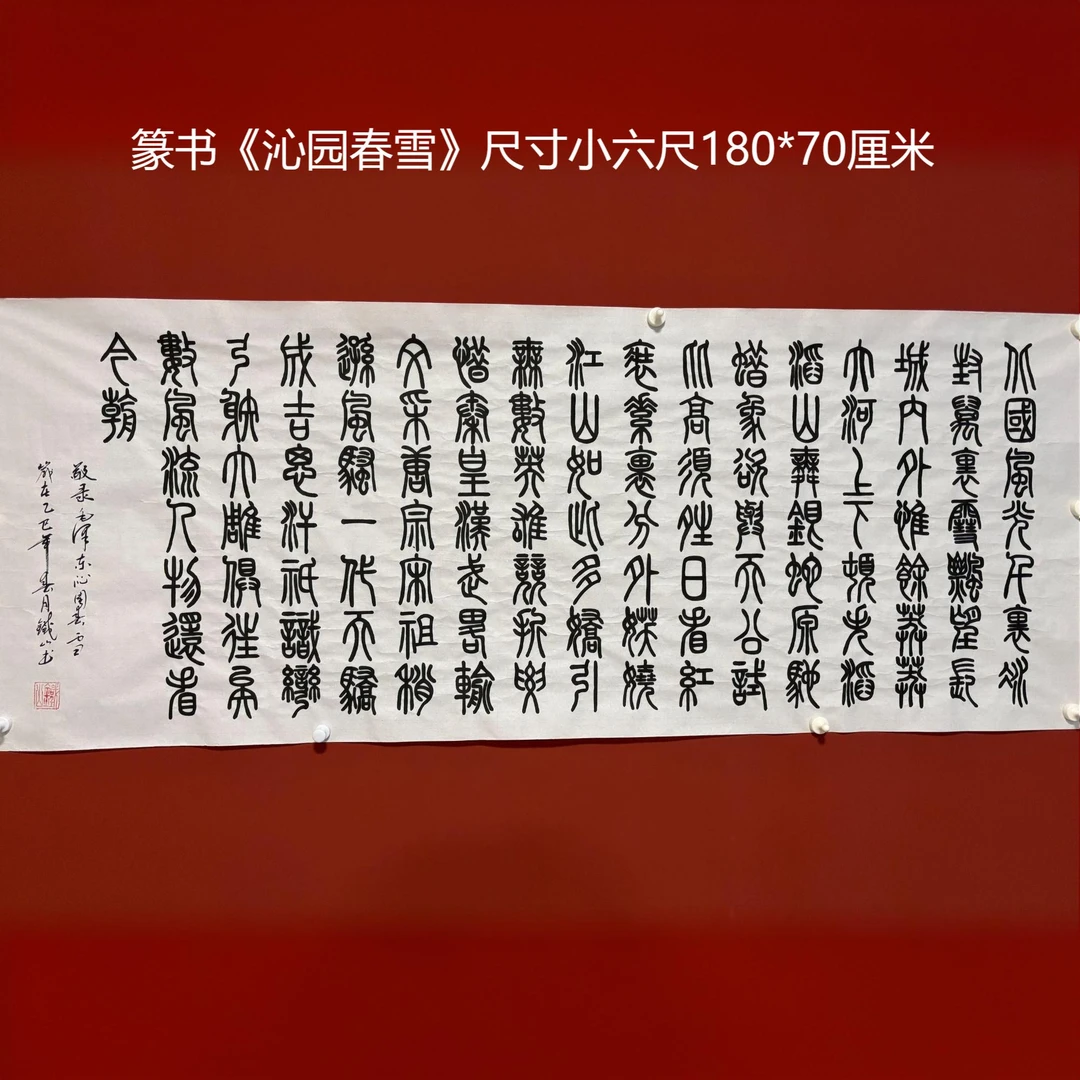 篆书《沁园春雪》尺寸小六尺180*70厘米
北國風光千裏冰
封萬裏雪飄望長
城內外惟餘莽莽
大河上下頓失滔
滔山舞銀蛇原馳
蠟象欲與天公試
比高須晴日看紅
裝素裹分外妖嬈
江山如此多嬌引
無數英雄競折腰
惜秦皇漢武略輸
文采唐宗宋祖稍
遜風騷一代天驕
成吉思汗祇識彎
弓射大雕俱往矣
數風流人物還看
今朝
敬录毛泽东沁园春雪
歲在乙巳年春月鐵山书